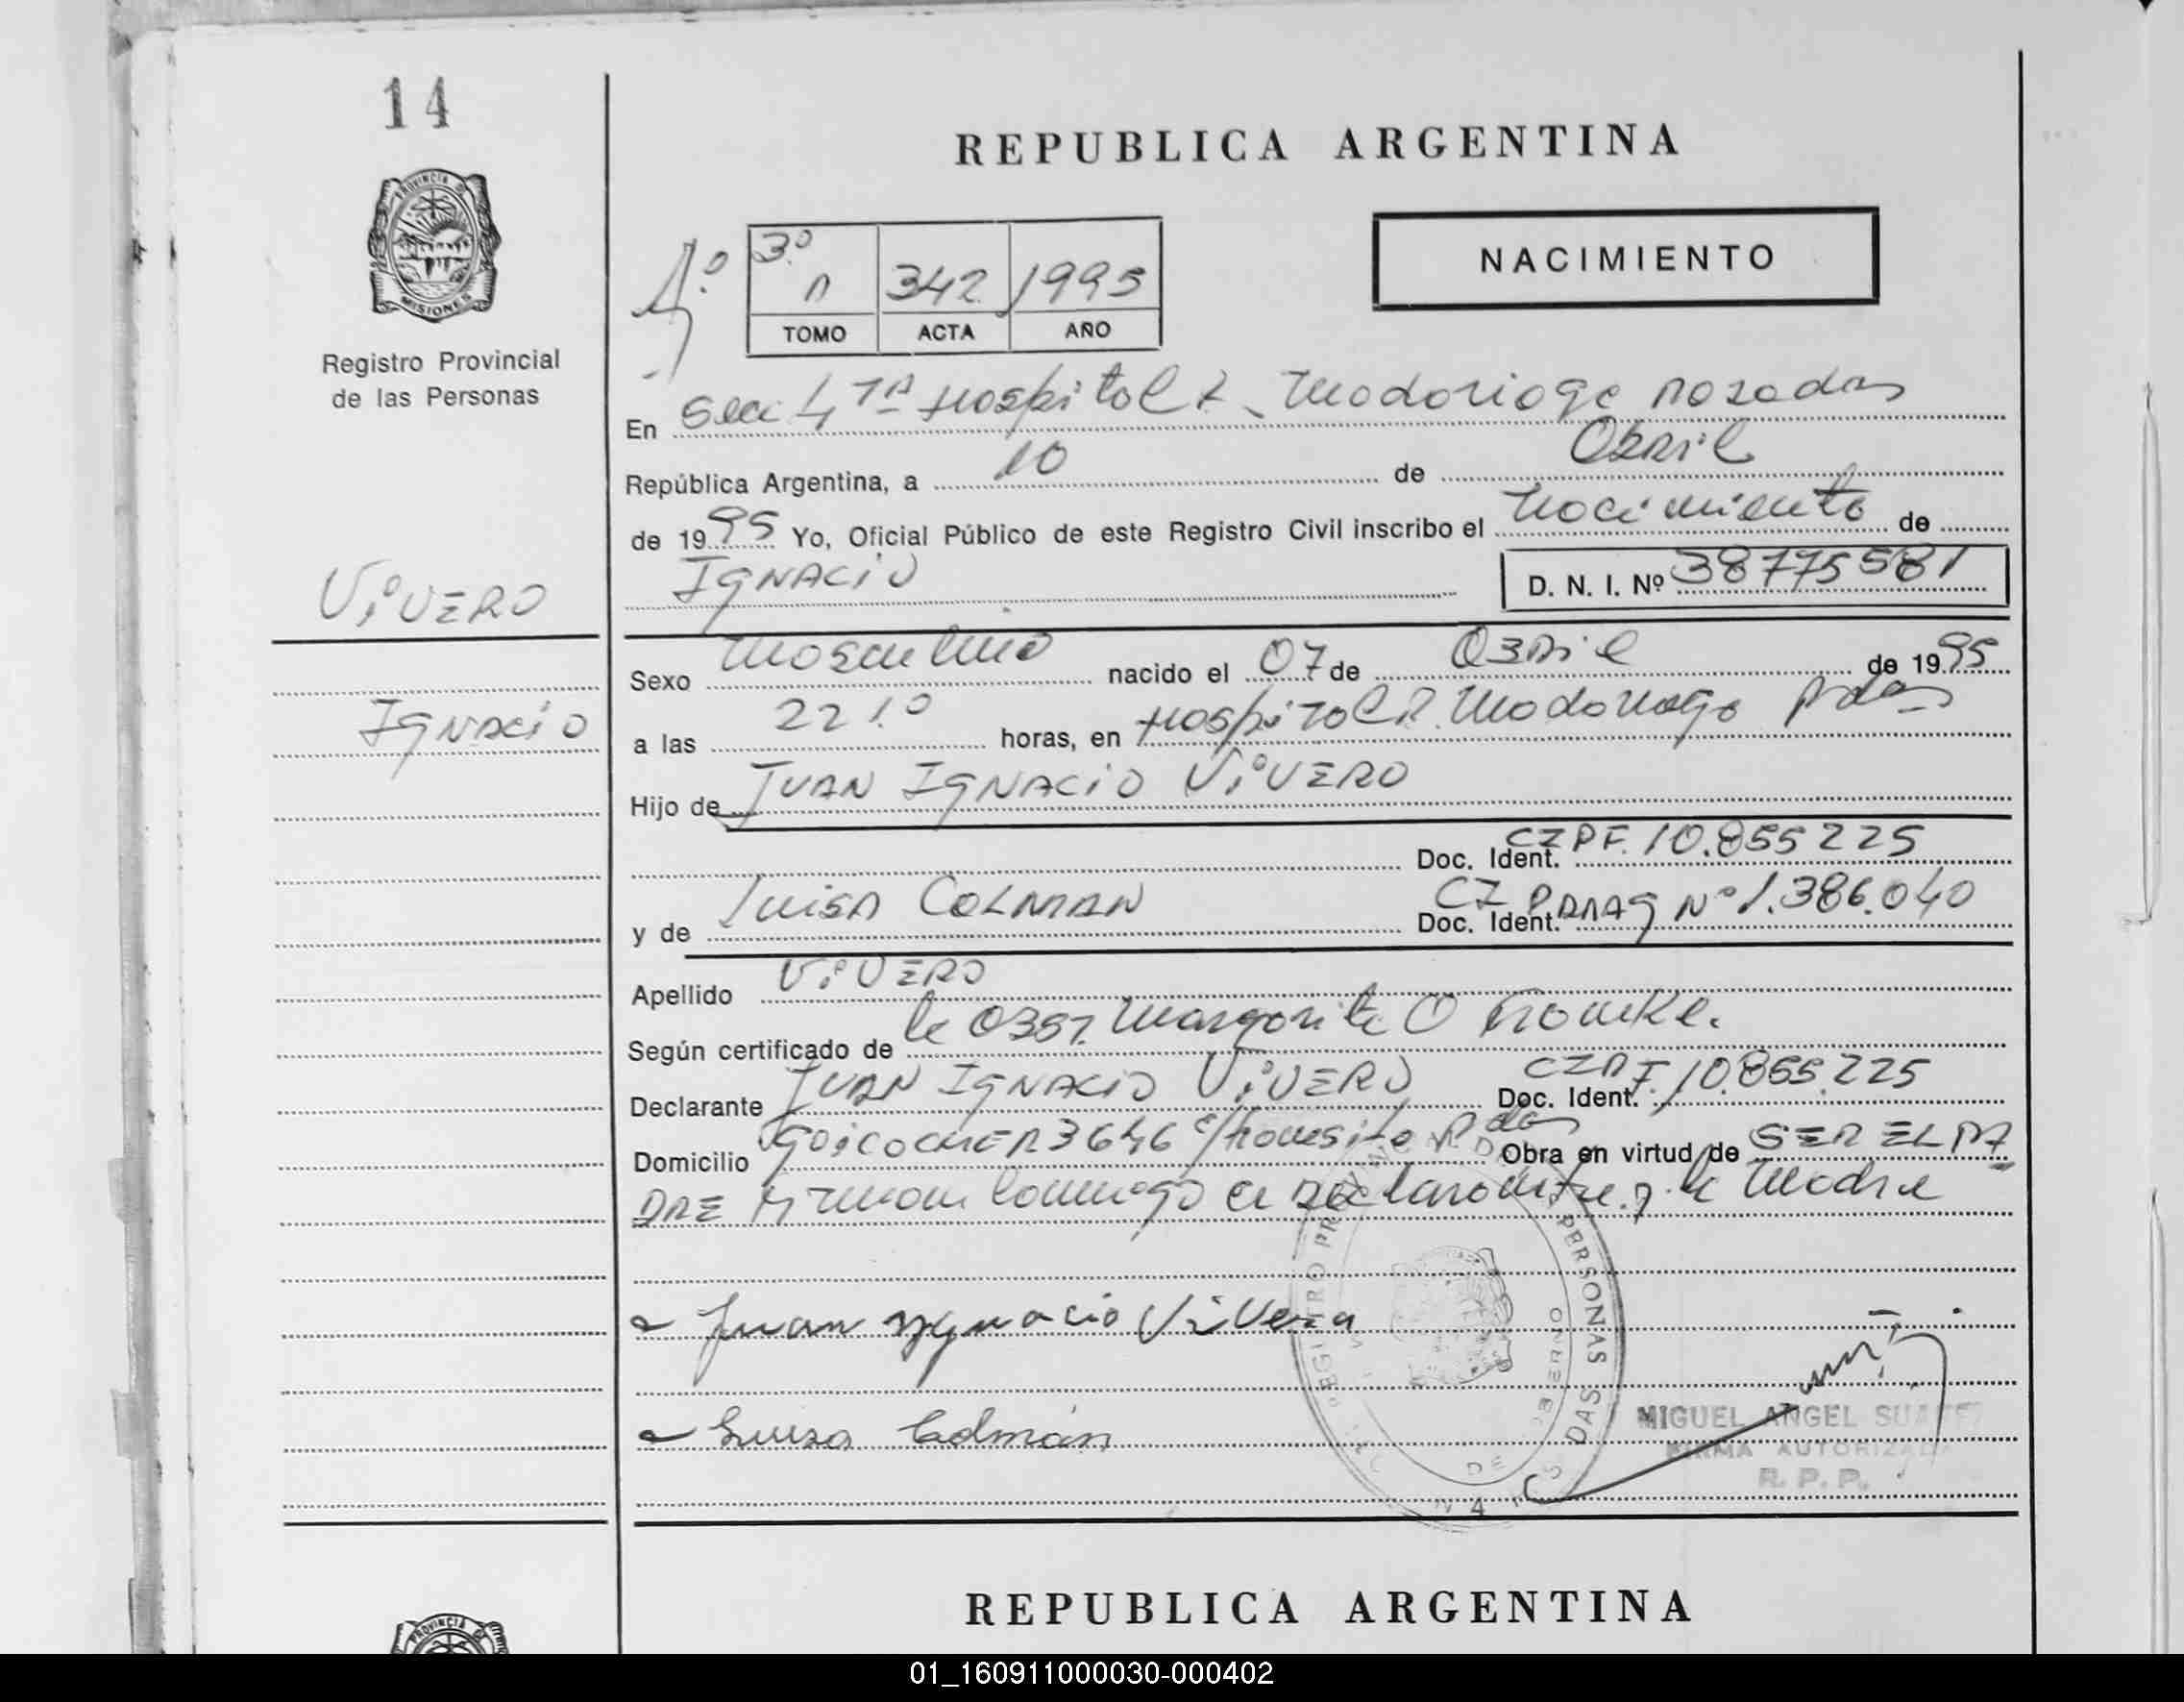 14
PROVINCIA D
MISIONES
Registro Provincial
de las Personas
REPUBLICA ARGENTINA
NACIMIENTO
3º
342 1995
TOMO ACTA AÑO
En Secc 4ta Hospital R. Madariaga Posadas
República Argentina, a 10 de Abril
de 1995 Yo, Oficial Público de este Registro Civil inscribo el nacimiento de
IGNACIO D. N. I. Nº 38775581
ViVERO
Ignacio
Sexo masculino nacido el 07 de Abril de 1995
a las 22 horas, en Hospital R. Madariaga Pdas
Hijo de JUAN IGNACIO ViVERO
Doc. Ident. CIPF. 10.855225
y de Luisa COLMAN Doc. Ident. CI PARAG Nº 1.386.040
Apellido ViVERO
Según certificado de la Obst. Margarita
Declarante JUAN IGNACIO ViVERO Doc. Ident. CIPF. 10.855.225
Domicilio 3646 Pdas Obra en virtud de SER EL PA
DRE y firman conmigo el declarante y la Madre
REGISTRO PROVINCIAL DE LAS PERSONAS
Juan Ygnacio Vivero
Luisa Colmán
MIGUEL ANGEL SUAREZ
FIRMA AUTORIZADA
R. P. P.
REPUBLICA ARGENTINA
PROVINCIA
01_160911000030-000402